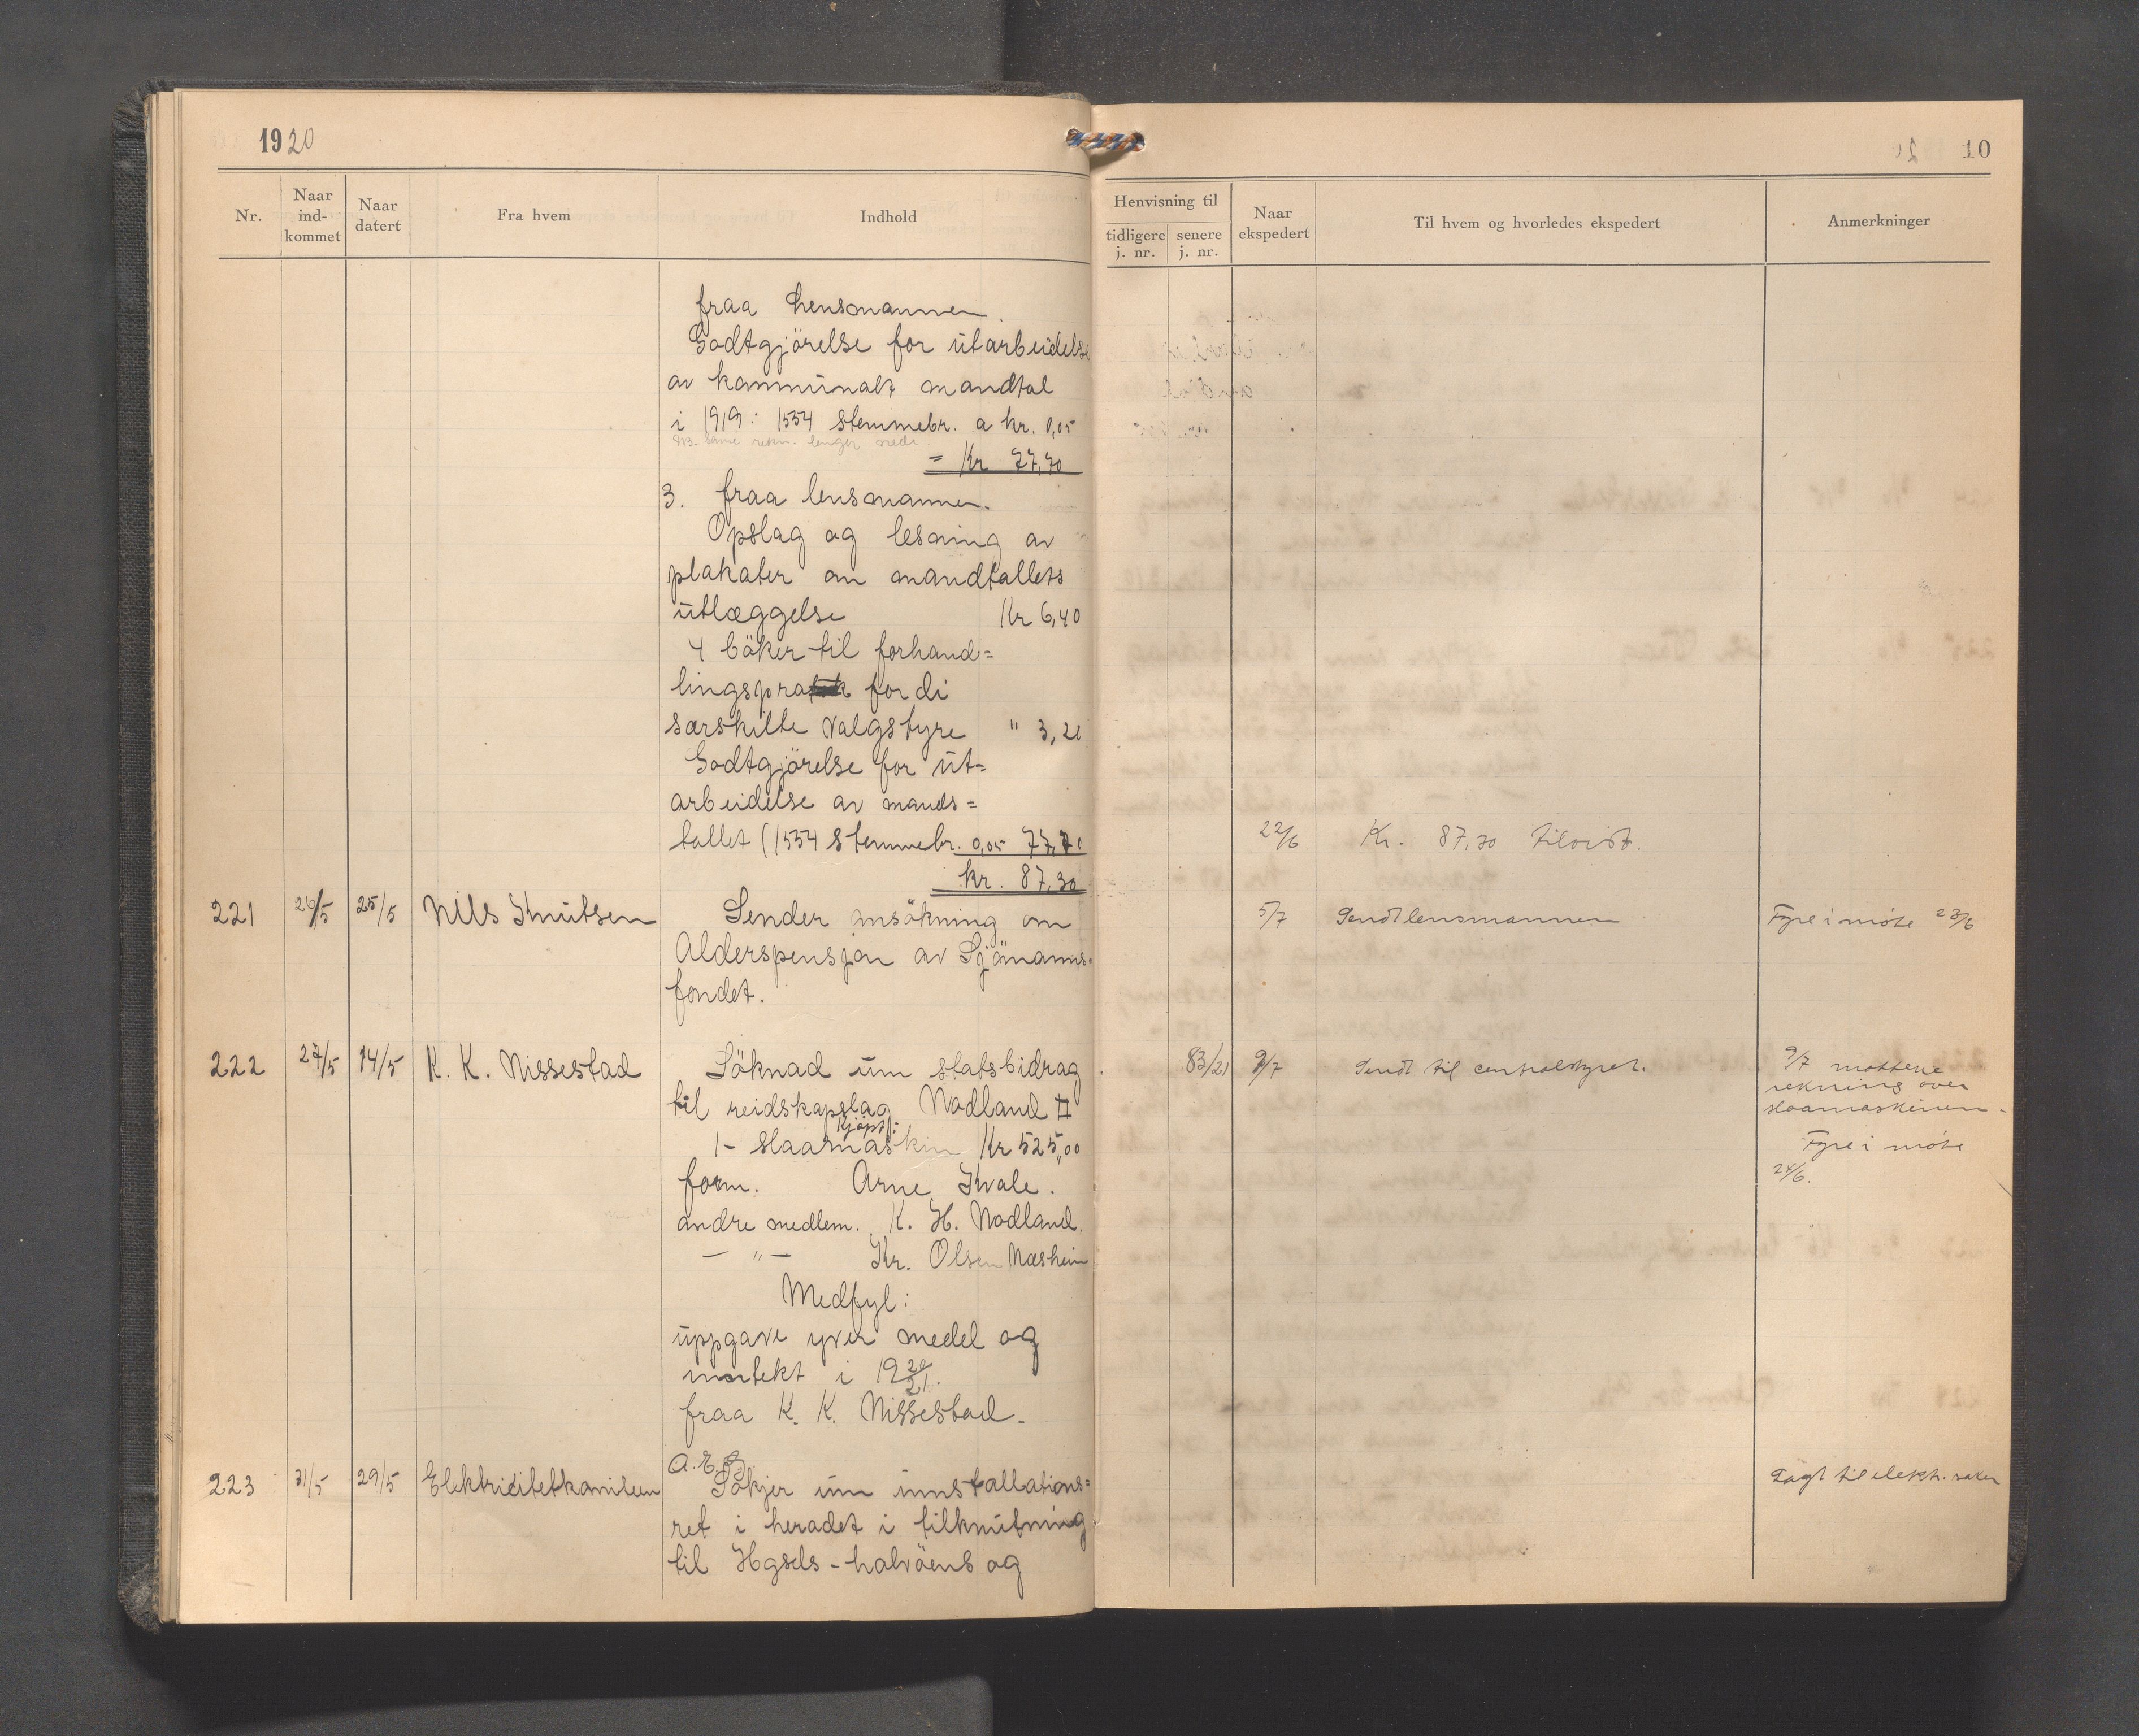 1920
10
Nr.
Naar ind-kommet
Naar datert
Fra hvem
Indhold
Henvisning til
tidligere j. nr.
senere j. nr.
Naar ekspedert
Til hvem og hvorledes ekspedert
Anmerkninger
fraa lensmannen.
Godtgjörelse for utarbeidelse
av kommunalt mandtal
i 1919: 1554 stemmebr. a kr. 0,05
NB. same rekn. lenger nede
= Kr 77,70
3. fraa lensmannen.
Opslag og lesning av
plakater om mandtallets
utlæggelse Kr 6,40
4 böker til forhand=
lingspra for di
særskilte valgstyre " 3,20
Godtgjörelse for ut=
arbeidelse av mands=
tallet (1554 stemmebr. 0,05 77,70
22/6 Kr. 87,30 tilvist.
kr. 87,30
221 26/5 25/5 Nils Knutsen Sender ansökning om 5/7 Sendt lensmannen Fyre i möte 23/6
Alderspensjon av Sjömanns-
fondet.
222 27/5 14/5 K. K. Nissestad Söknad um statsbidrag 83/21 9/7 Sendt til centralstyret. 9/7 mottene
rekning over
slaamaskinen.
til reidskapslag Nodland II
kjöpt:
1- slaamaskin Kr 525,00
Fyre i möte
24/6.
form. Arne Kvale.
andre medlem. K. H. Nodland.
— " — Kr. Olsen Næsheim
Medfyl:
uppgave yver medel og
inntekt i 1920/21.
fraa K. K. Nissestad.
A.E.G.
223 31/5 29/5 Elektricitetkomiteen Sökjer um innstallations= Lagt til elektr. saker
ret i heradet i tilknutning
til Hgsds-halvöens og